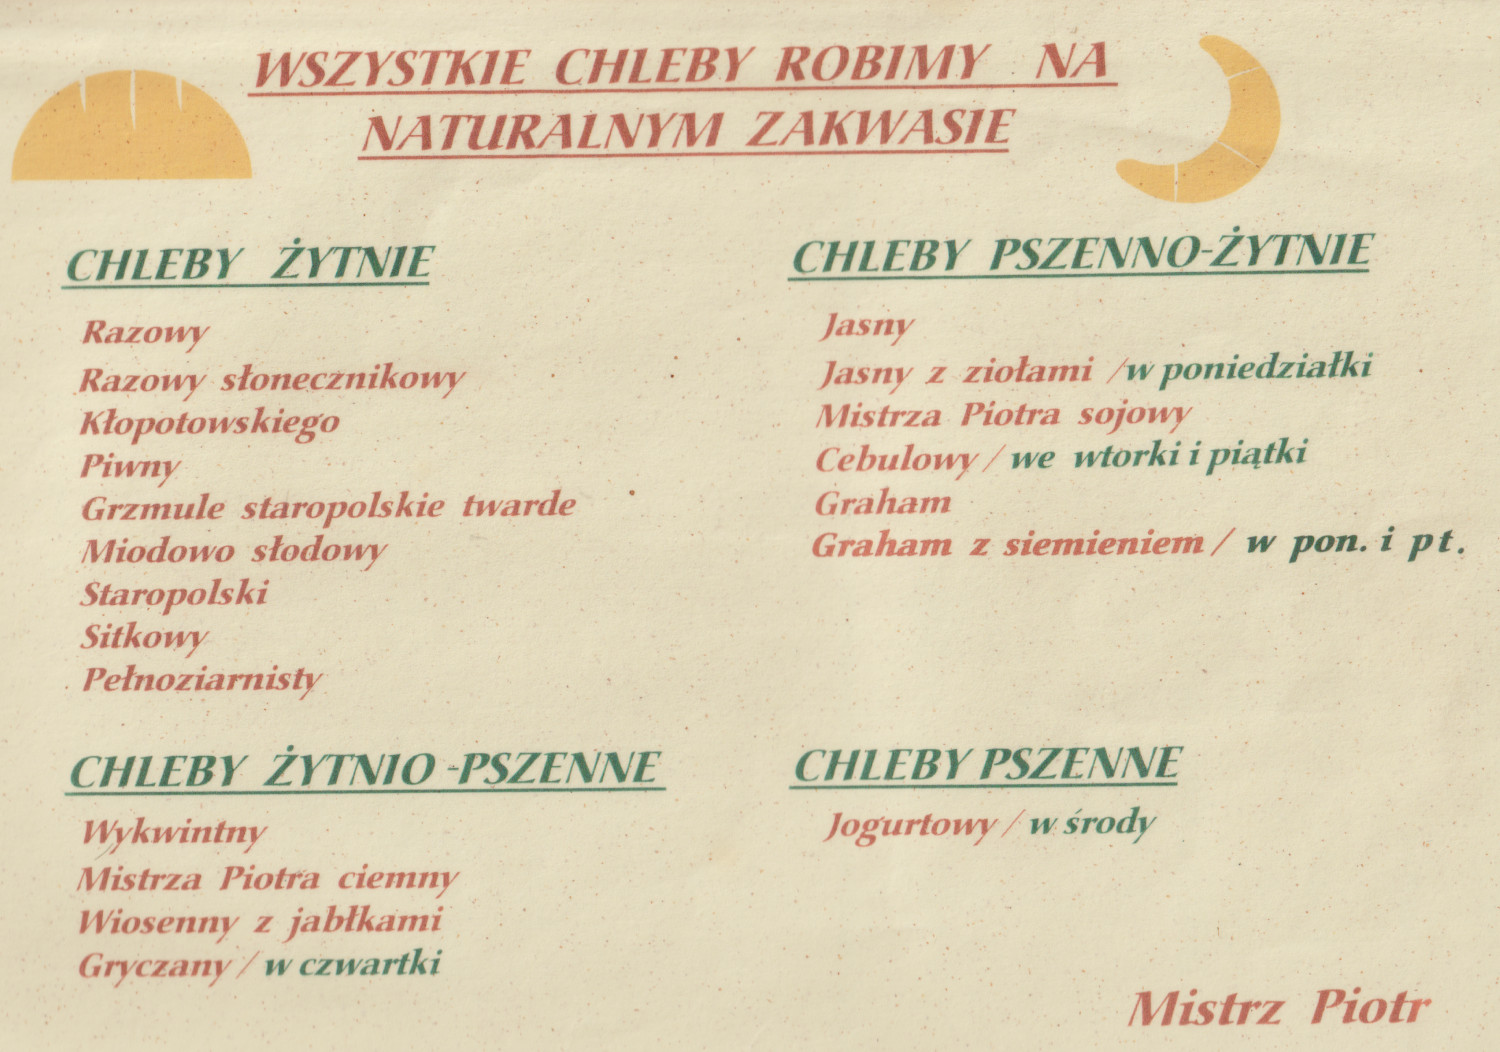 WSZYSTKIE CHLEBY ROBIMY NA
NATURALNYM ZAKWASIE
CHLEBY ŻYTNIE
Razowy
Razowy słonecznikowy
Kłopotowskiego
Piwny
Grzmule staropolskie twarde
Miodowo słodowy
Staropolski
Sitkowy
Pełnoziarnisty
CHLEBY PSZENNO-ŻYTNIE
Jasny
Jasny z ziołami /w poniedziałki
Mistrza Piotra sojowy
Cebulowy / we wtorki i piątki
Graham
Graham z siemieniem / w pon. i pt.
CHLEBY ŻYTNIO -PSZENNE
Wykwintny
Mistrza Piotra ciemny
Wiosenny z jabłkami
Gryczany / w czwartki
CHLEBY PSZENNE
Jogurtowy / w środy
Mistrz Piotr